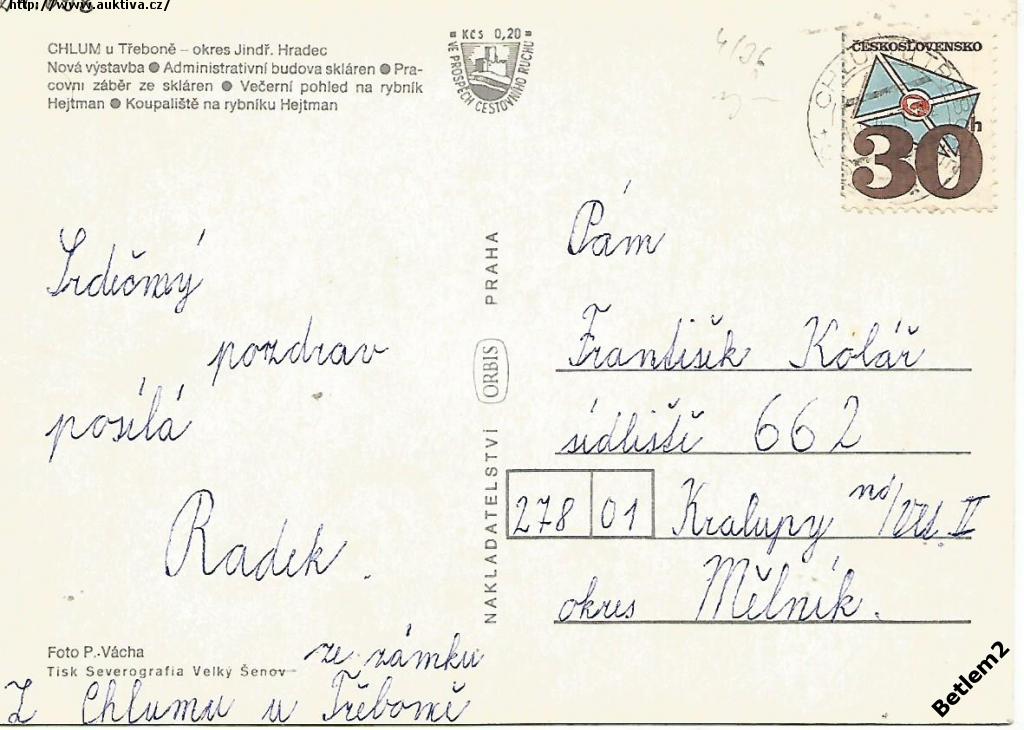 http://www.auktiva.cz/
CHLUM u Třeboně – okres Jindř. Hradec
Nová výstavba ● Administrativní budova skláren ● Pra-
covní záběr ze skláren ● Večerní pohled na rybník
Hejtman ● Koupaliště na rybníku Hejtman
Kčs 0,20
VE PROSPĚCH CESTOVNÍHO RUCHU
4/36
ČESKOSLOVENSKO
30h
CHLUM U TŘEB
Srdečný
pozdrav
posílá
Radek.
ze zámku
Z Chlumu u Třeboně
Foto P. Vácha
Tisk Severografia Velký Šenov
NAKLADATELSTVÍ ORBIS PRAHA
Pám
František Kolář
sídliští 662
278 01 Kralupy nd/Vlt. II
okres Mělník.
Betlem2